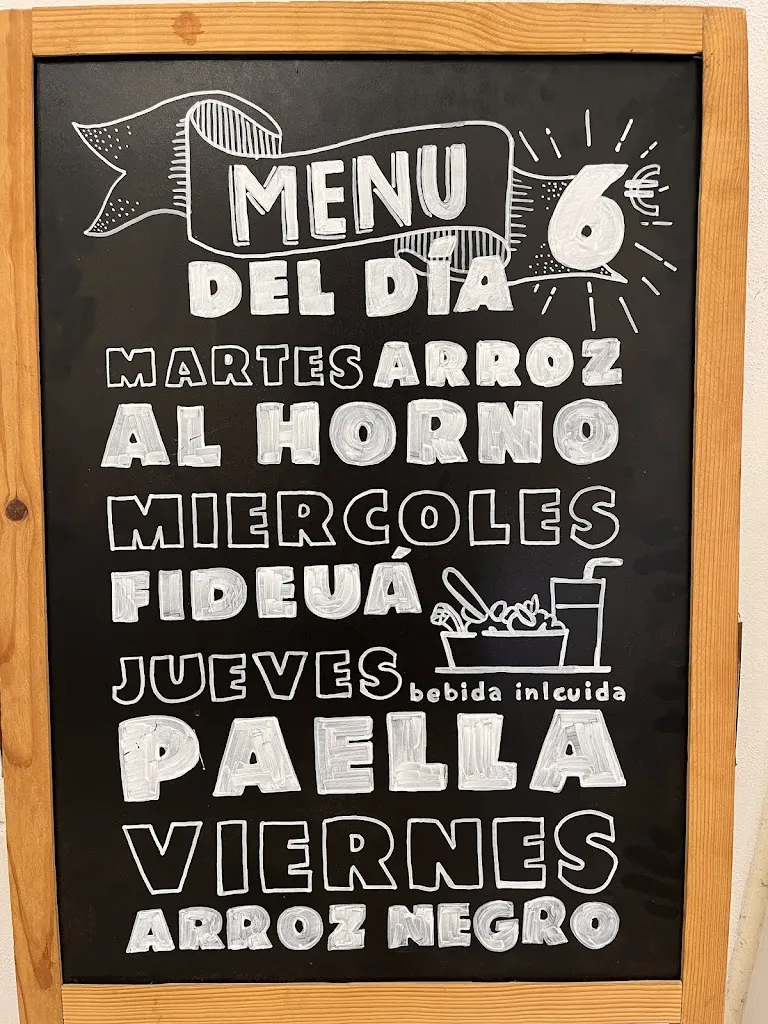 MENU
6€
DEL DÍA
MARTES ARROZ
AL HORNO
MIERCOLES
FIDEUÁ
JUEVES
bebida inlcuida
PAELLA
VIERNES
ARROZ NEGRO